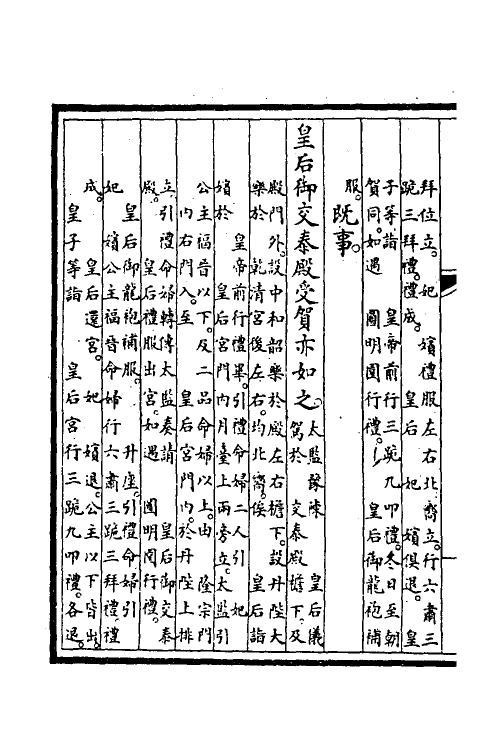 拜位立。妃　嬪禮服左右北嚮立。行六肅三
跪三拜禮。禮成。　皇后　妃　嬪俱退。　皇
子等詣　皇帝前行三跪九叩禮。冬日至朝
賀同。如遇　圓明園行禮。　皇后御龍袍補
服。
既事。
皇后御交泰殿受賀亦如之。
太監豫陳　皇后儀
駕於　交泰殿簷下。及
殿門外。設中和韶樂於殿左右檐下。設丹陛大
樂於　乾清宮後左右。均北嚮。俟　皇后詣
皇帝前行禮畢。引禮命婦二人引　妃
嬪於　皇后宮門內月臺上兩旁立。太監引
公主福晉以下。及二品命婦以上。由　隆宗門
內右門入。至　皇后宮門內。於丹陛上排
立。引禮命婦轉傳太監奏請　皇后御交泰
殿。　皇后禮服出宮。如遇　圓明園行禮。
皇后御龍袍補服。　升座。引禮命婦引
妃　嬪公主福晉命婦行六肅三跪三拜禮。禮
成。　皇后還宮。　妃　嬪退。公主以下皆出。
皇子等詣　皇后宮行三跪九叩禮。各退。